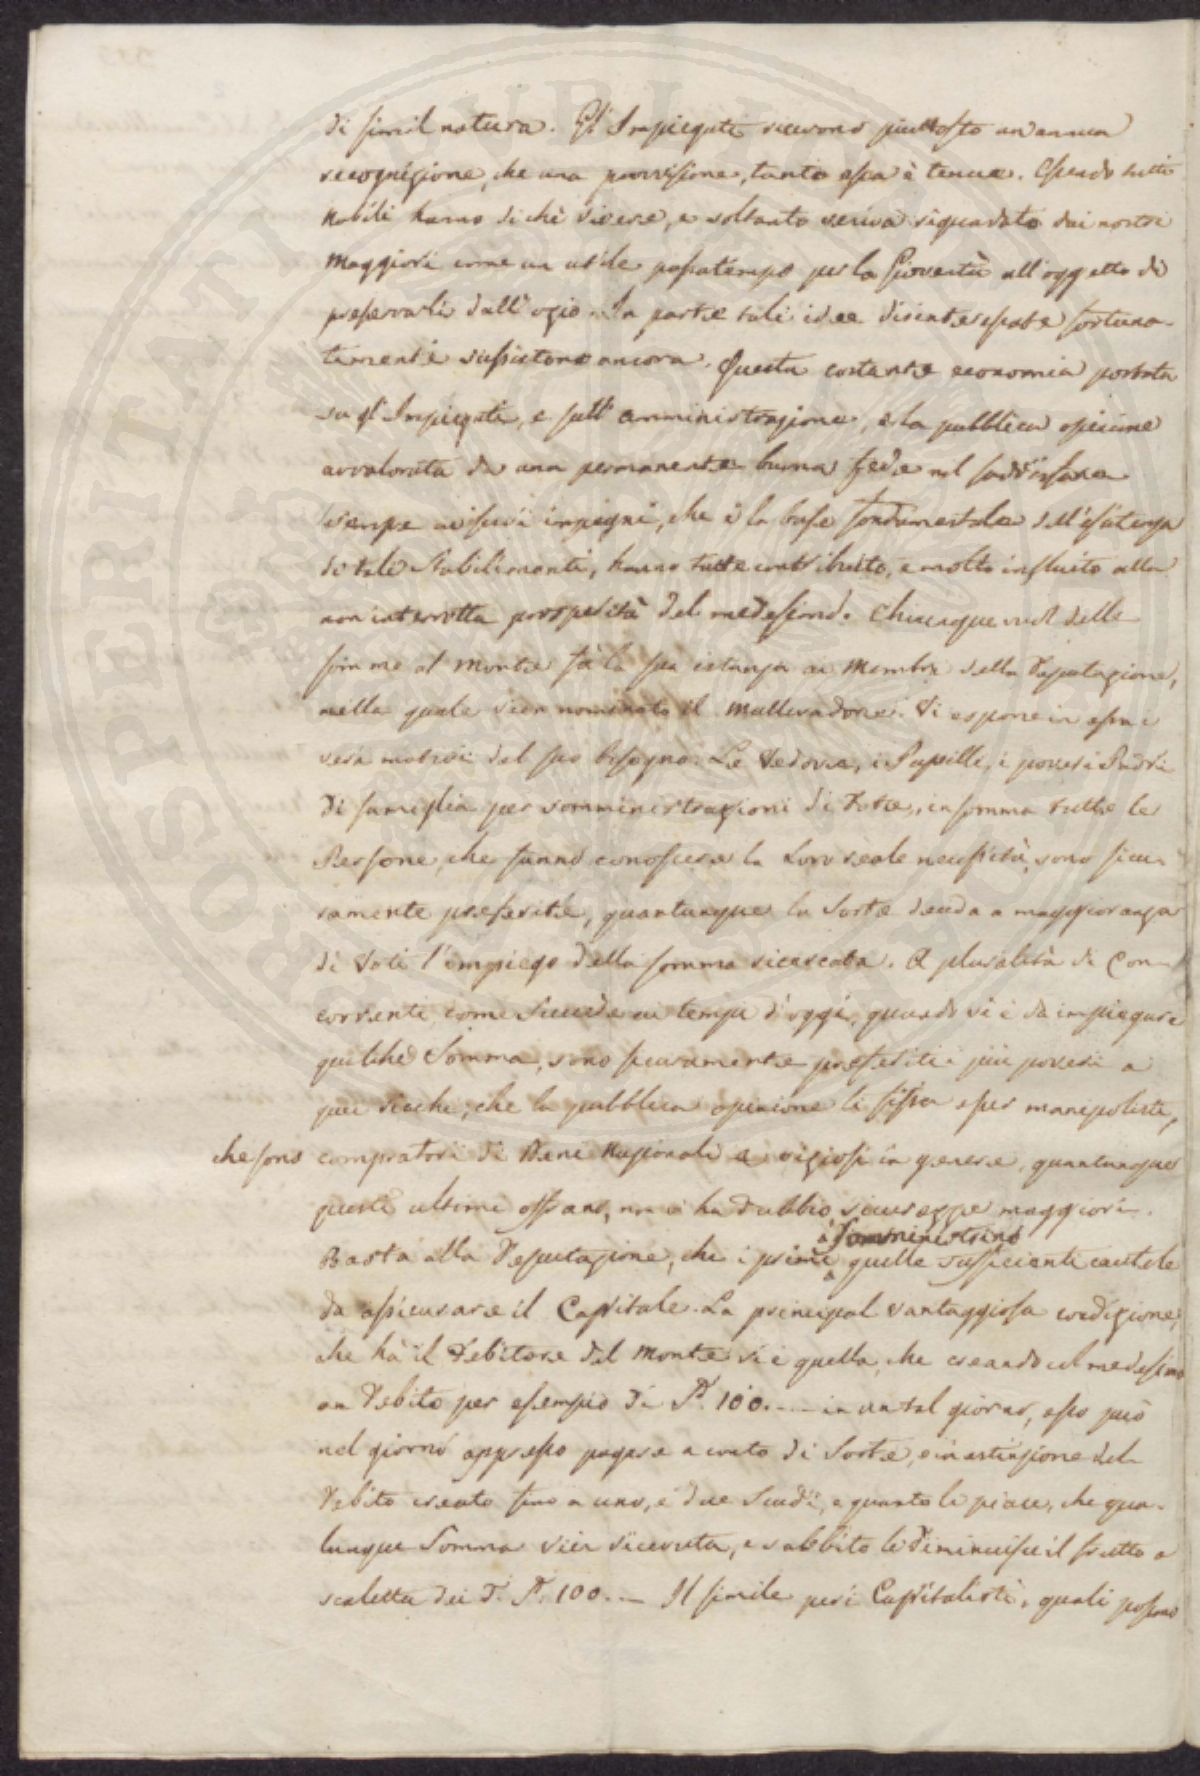 di simil natura. Gl'Impiegati ricevono piuttosto un annua
recognizione, che una provvisione, tanto essa è tenue. Essendo tutti
Nobili hanno di chè vivere, e soltanto veniva riguardato dai nostri
Maggiori come un utile passatempo per la Gioventù all'oggetto di
preservarli dall'ozio. In parte tali idee disinteressate fortuna-
tamente sussistono ancora. Questa costante economia portata
su gl'Impiegati, e sull'amministrazione, e la pubblica opinione
avvalorata da una permanente buona fede nel soddisfare
sempre ai suoi impegni, che è la base fondamentale dell'esistenza
di tali Stabilimenti, hanno tutte contribuito, e molto influito alla
non interrotta prosperità del medesimo. Chiunque vuol delle
somme al Monte fà la sua istanza ai Membri della Deputazione,
nella quale vien nominato il Mallevadore. Si espone in essa i
veri motivi del suo bisogno. Le Vedove, i Pupilli, i poveri Padri
di famiglia per somministrazioni di Dote, in somma tutte le
Persone, che fanno conoscere la loro reale necessità, sono sicu-
ramente preferite, quantunque la Sorte decida a maggioranza
di Voti l'impiego della somma ricercata. A pluralità di Con-
correnti come succede ai tempi d'oggi, quando vi è da impiegare
qualche Somma, sono sicuramente preferiti i più poveri a
quei ricchi, che la pubblica opinione li fissa esser manipolisti,
che sono compratori di Beni Nazionali e viziosi in genere, quantunque
questi ultimi offrano, non vi ha dubbio, sicurezze maggiori.
à somministrino
Basta alla Deputazione, che i primi quelle sufficienti cautele
da assicurare il Capitale. La principal vantaggiosa condizione,
che hà il Debitore del Monte si è quella, che creando col medesimo
un Debito per esempio di P. 100. -- in un tal giorno, esso può
nel giorno appresso pagare a conto di Sorte, e in estinzione del
Debito creato fino a uno, e due Scudi, e quanto li piace, che qua-
lunque Somma vien ricevuta, e subbito li diminuisce il frutto a
scaletta dei D. P. 100. -- Il simile per i Capitalisti, quali possono